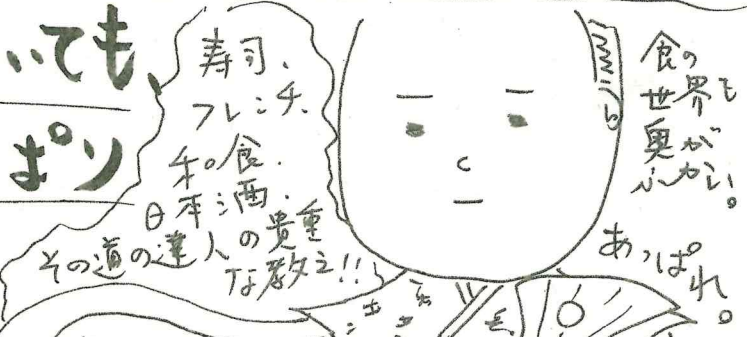 いても、
ポン
寿司、
フレンチ、
和食、
日本酒、
その道の達人の貴重
な教え!!
食の
世界も
奥が
ふかい。
あっぱれ。